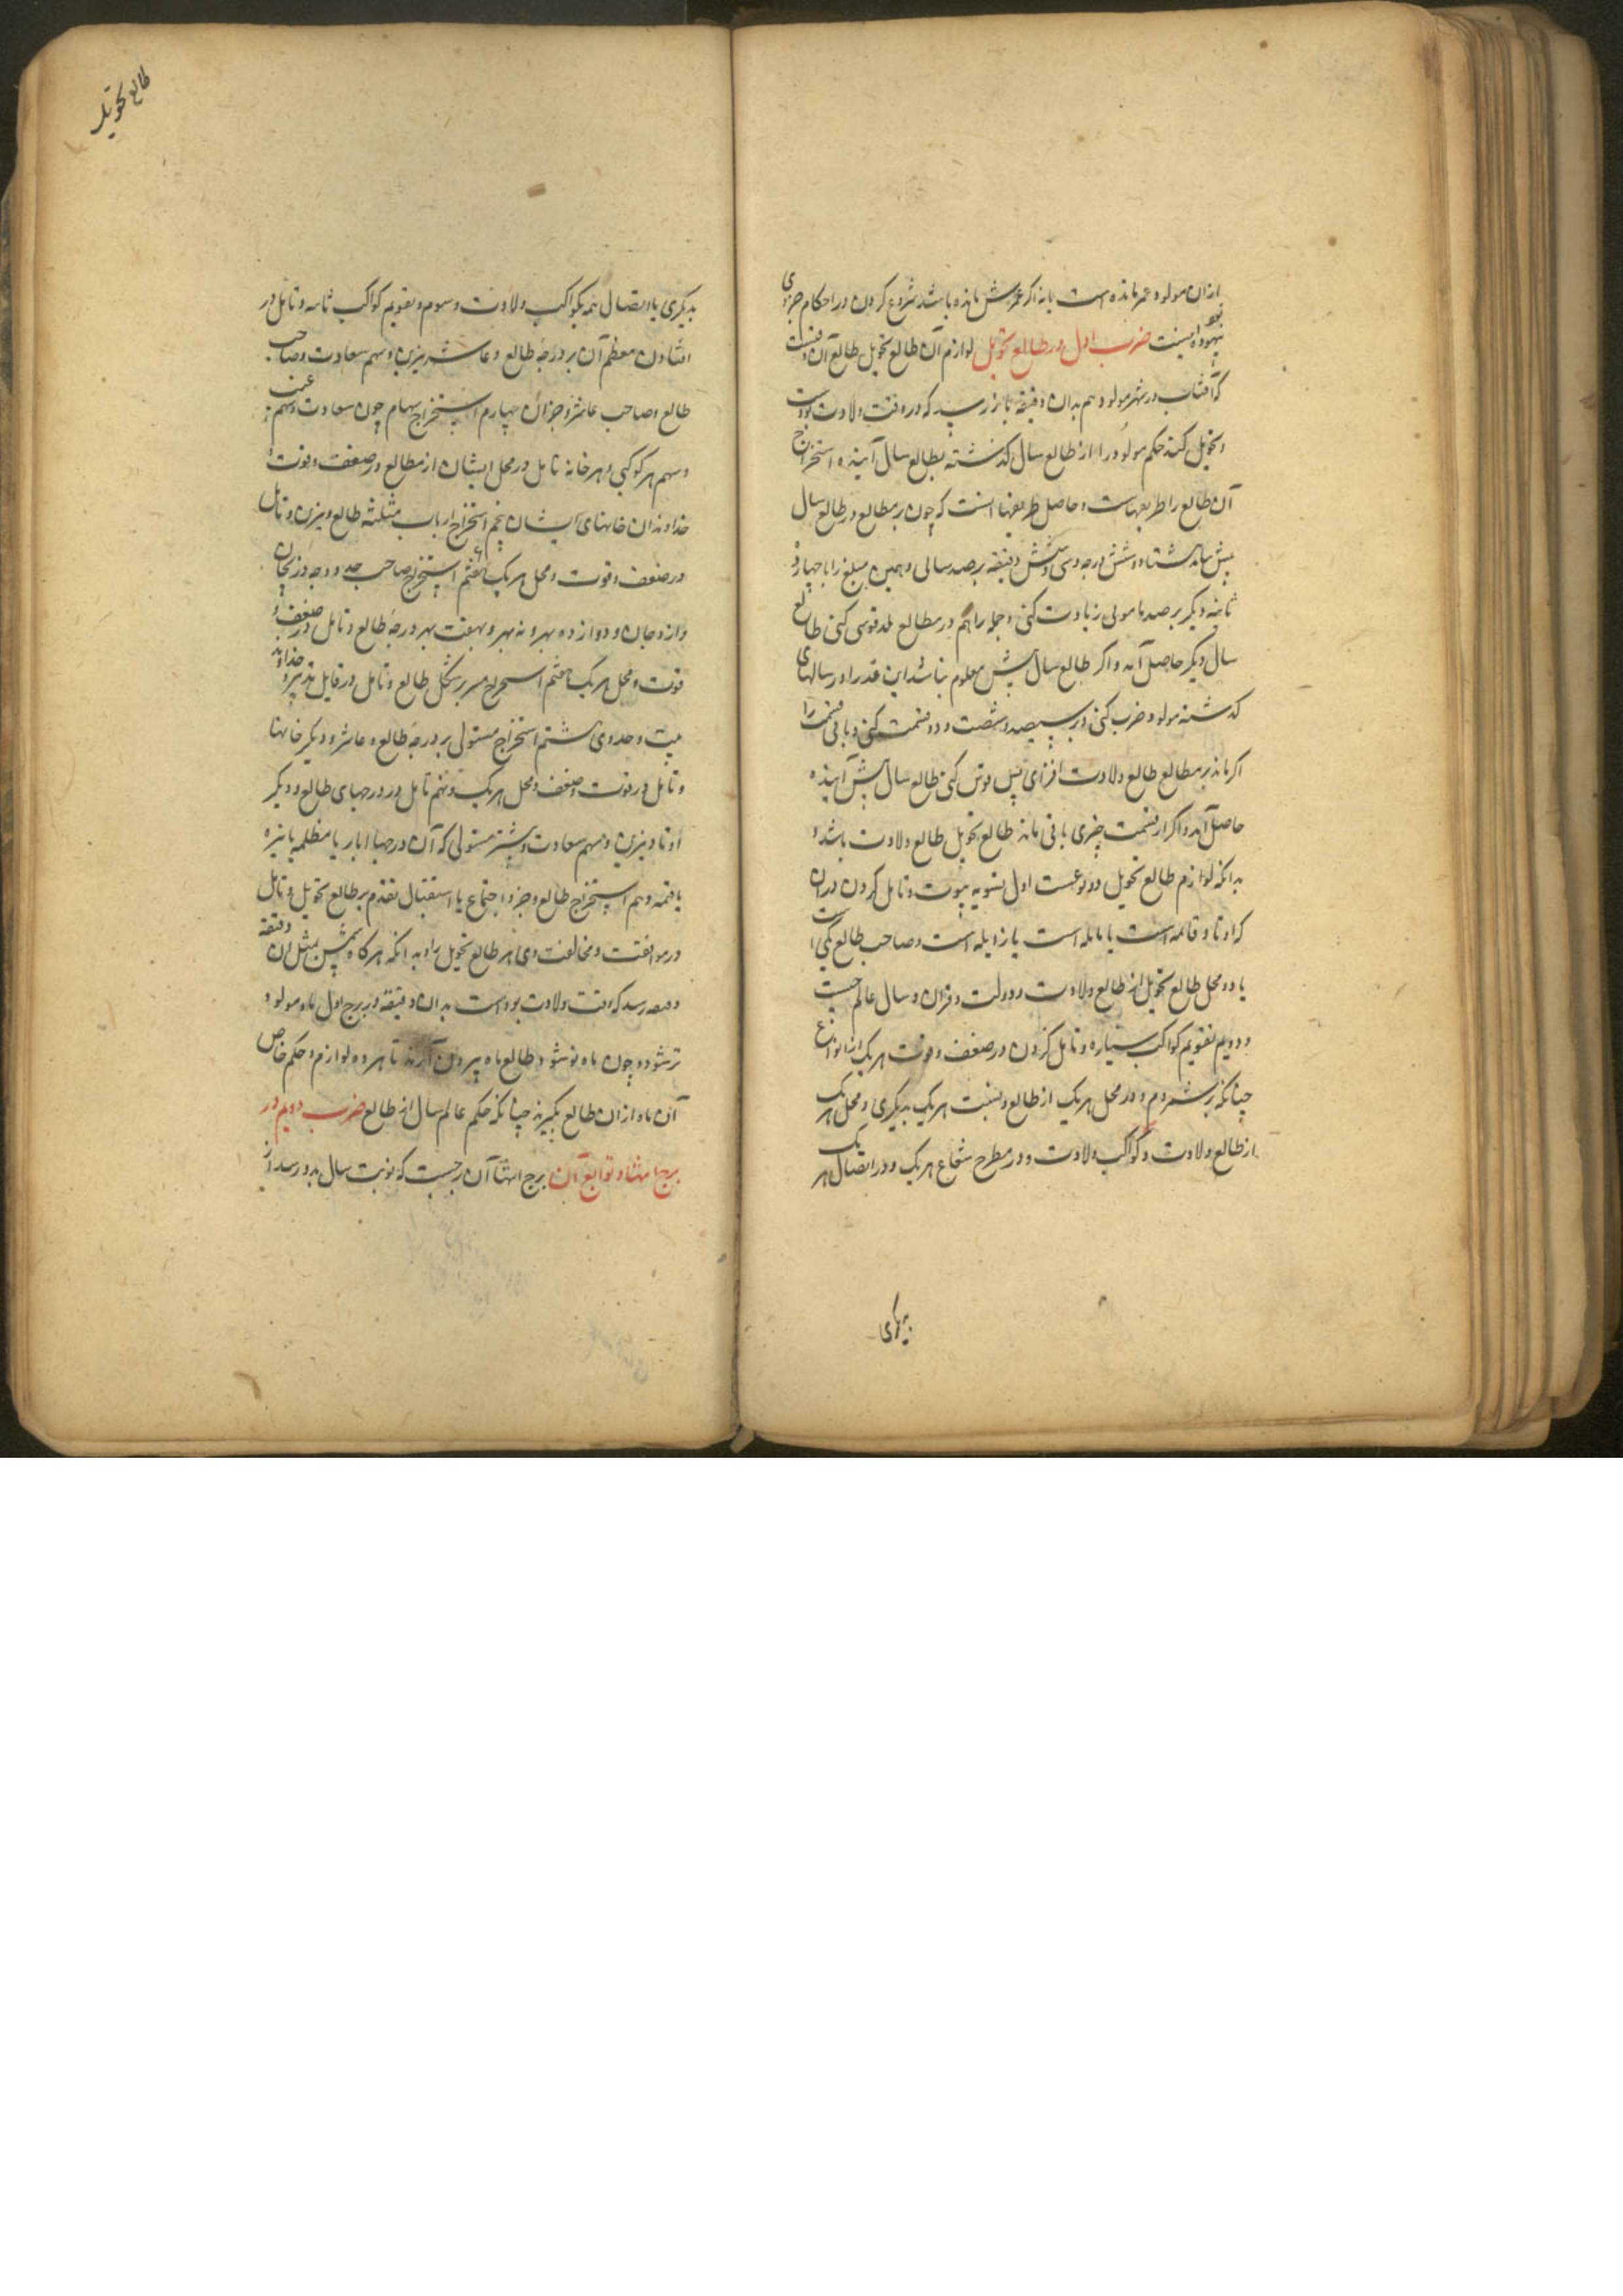 ازان مولود عمر مانده است یا نه اگر عمرش مانده باشد شروع کردن در احکام جزوی
بیهوده نیست ضرب اول در طالع تحویل لوازم آن طالع تحویل طالع آن وقتست
که آفتاب در شهر مولود هم بدان دقیقه باز رسد که در وقت ولادت بودست
و تحویل کند حکم مولود را از طالع سال گذشته بطالع سال آینده و استخراج
آن طالع را طریقهاست و حاصل طریقها اینست که چون بر مطالع در طالع سال
پیش هشتاد و شش درجه و سی و شش دقیقه برصد سالی و همین مبلغ را با چهار
ثانیه دیگر برصد مامونی زیادت کنی و جمله را هم در مطالع بلد قوس کنی طالع
سال دیگر حاصل آید و اگر طالع سال پیش معلوم نباشد این قدر را در سالهای
گذشته مولود ضرب کنی و بر سیصد و شصت و دو قسمت کنی و باقی قسمت را
اگر ماند بر مطالع طالع ولادت افزای پس قوس کنی طالع سال پیش آینده
حاصل آید و اگر از قسمت چیزی باقی نماند طالع تحویل طالع ولادت باشد و
بدانکه لوازم طالع تحویل دو نوعست اول تسویه بیوت و تامل کردن در آن
که اوتاد قائمه است یا مایله است یا زایله است و صاحب طالع یکی است
یا دو و محل طالع تحویل از طالع ولادت و دولت و قران و سال عالم چیست
و دویم تقویم کواکب سیاره و تامل کردن در ضعف و قوت هر یک از انواع
چنانکه بر شمردم و در محل هر یک از طالع و نسبت هر یک بدیگری و محل هر یک
از طالع ولادت و کواکب ولادت و در مطرح شعاع هر یک و در اتصال هر یک
بدیگری
طالع تحویل
بدیگری یا اتصال همه بکواکب ولادت و سوم تقویم کواکب ثابته و تامل در
افتادن معظم آن بر درجه طالع و عاشر و نیرین و سهم سعادت و صاحب
طالع و صاحب عاشر و جز آن چهارم استخراج سهام چون سعادت و سهم غیب
و سهم هر کوکبی و هر خانه تامل در محل ایشان از مطالع و ضعف و قوت
خداوندان خانهای ایشان پنجم استخراج ارباب مثلثه طالع و نیرین و تامل
در ضعف و قوت و محل هر یک ششم استخراج صاحب حد و وجه و دریجان
و ازدجان و دوازده بهر و نه بهر و هفت بهر درجه طالع و تامل در ضعف و
قوت و محل هر یک هفتم استخراج مدبر شکل طالع و تامل در قابل تدبیر و خداوند
بیت و حد وی هشتم استخراج مستولی بر درجه طالع و عاشر و دیگر خانها
و تامل در قوت و ضعف و محل هر یک و نهم تامل در درجهای طالع و دیگر
اوتاد و نیرین و سهم سعادت و بیشتر مستولی که آن درجها آبار یا مظلمه یا نیره
یا قتمه دهم استخراج طالع و جزو اجتماع یا استقبال مقدم بر طالع تحویل و تامل
در موافقت و مخالفت وی هر طالع تحویل را و بدانکه هر گاه شمس بمثل آن دقیقه
رسد که وقت ولادت بودست بدان دقیقه در برج اول ماه مولود
تر شود و چون ماه نو شود طالع ماه بیرون آرند تا هر ده لوازم و حکم خاص
آن ماه از ان طالع بگیرند چنانکه حکم عالم سال از طالع ضرب دویم در
برج انتها و توابع آن برج انتها آن برجیست که نوبت سال بدو رسد از